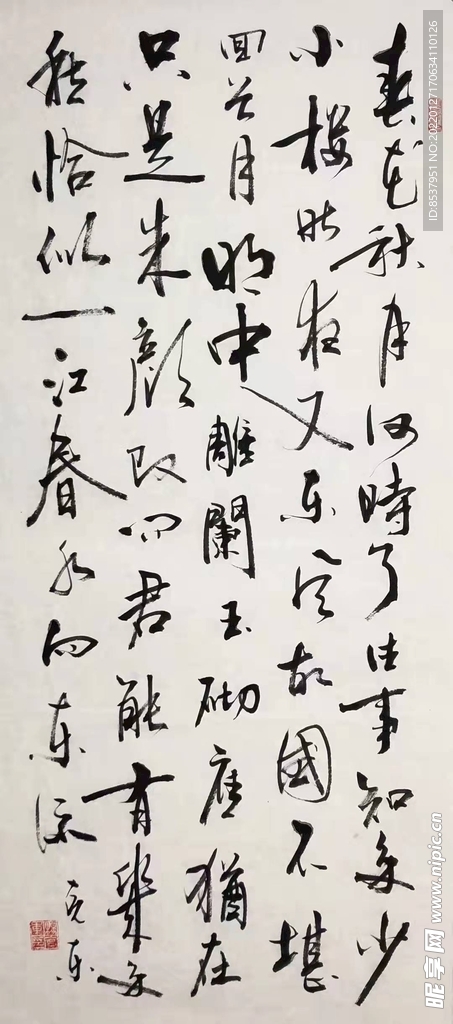 春花秋月何時了往事知多少
小樓昨夜又东风故國不堪
回首月明中雕闌玉砌應猶在
只是朱顔改问君能有幾多
愁恰似一江春水向东流
克东
ID:8537951 NO:20220127170634110126
昵享网 www.nipic.cn